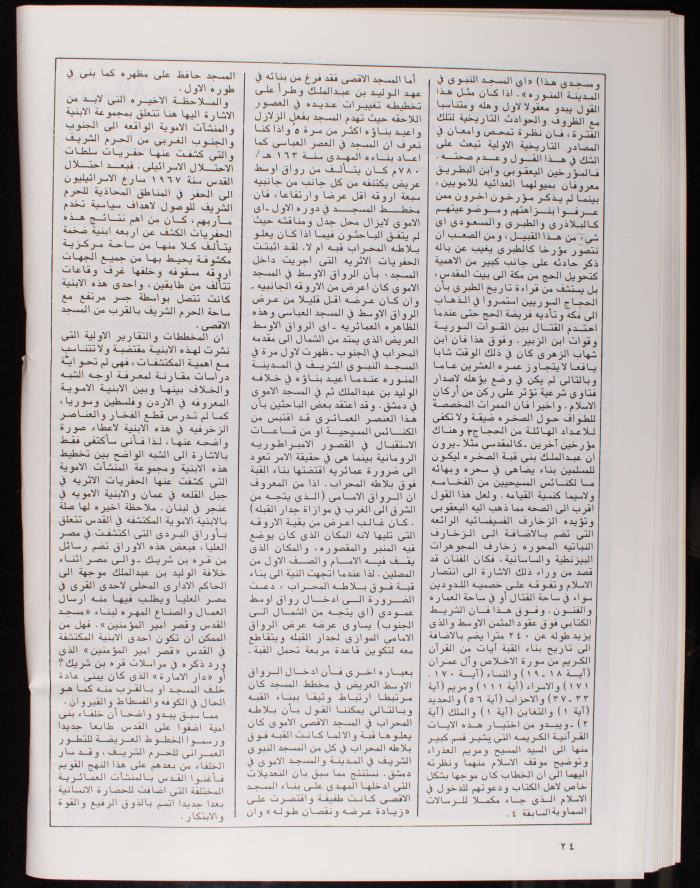 ومسجدى هذا)» (اى المسجد النبوى في
المدينة المنوره». اذا كان مثل هذا
القول يبدو معقولا لاول وهله ومتناسبا
مع الظروف والحوادث التاريخية لتلك
الفترة، فان نظرة تمحص وامعان في
المصادر التاريخية الاولية تبعث على
الشك في هذا القول وعدم صحته.
فالمؤرخين اليعقوبى وابن البطريق
معروفان بميولهما العدائيه للامويين،
بينما لم يذكر مؤرخون اخرون ممن
عرفوا بنزاهتهم وموضوعيتهم
كالبلاذرى والطبرى والمسعودى اى
شىء من هذا القبيل، ومن الصعب ان
نتصور مؤرخا كالطبرى يغيب عن باله
ذكر حادثه على جانب كبير من الاهمية
كتحويل الحج من مكة الى بيت المقدس،
بل يستشف من قراءة تاريخ الطبرى بأن
الحجاج السوريين استمروا في الذهاب
الى مكه وتأديه فريضة الحج حتى عندما
احتدم القتال بين القوات السورية
وقوات ابن الزبير. وفوق هذا فان ابن
شهاب الزهرى كان في ذلك الوقت شابا
يافعا لايتجاوز عمره العشرين عاما
وبالتالى لم يكن في وضع يؤهله لاصدار
فتاوى شرعية تؤثر على ركن من أركان
الاسلام. واخيرا فان الممرات المخصصة
للطواف حول الصخره ضيقة ولا تكفى
للاعداد الهائلة من الحجاج٣ وهناك
مؤرخين آخرين ـ كالمقدسى مثلا ـ يرون
ان عبدالملك بنى قبة الصخره ليكون
للمسلمين بناء يضاهى في سحره وبهائه
ما لكنائس المسيحيين من الفخامه
ولاسيما كنسية القيامه. ولعل هذا القول
اقرب الى الصحه مما ذهب اليه اليعقوبى
وتؤيده الزخارف الفسيفسائيه الرائعه
التى تضم بالاضافة الى الزخارف
النباتيه المحوره زخارف المجوهرات
البيزنطية والساسانية، فكأن الفنان قد
قصد من وراء ذلك الاشارة الى انتصار
الاسلام وتفوقه على خصميه اللدودين
سواء في ساحة القتال أو في ساحة العماره
والفنون. وفوق هذا فان الشريط
الكتابى فوق عقود المثمن الاوسط والذى
يزيد طوله عن ٢٤٠ مترا يضم بالاضافة
الى تاريخ بناء القبة آيات من القرآن
الكريم من سورة الاخلاص وآل عمران
(آية ١٨ ـ ١٩) والنساء (آية ١٧٠.
١٧١) والاسراء (آية ١١١) ومريم (آية
٣٣ ـ ٣٧) والاحزاب (آية ٥٦) والحديد
(آية ١) والتغابن (آية ١) والملك (آية
٢) ـ ويبدو من اختيار هذه الايات
القرآنية الكريمه التى يشير قسم كبير
منها الى السيد المسيح ومريم العذراء
وتوضيح موقف الاسلام منهما ونظرته
اليهما الى ان الخطاب كان موجها بشكل
خاص لاهل الكتاب ودعوتهم للدخول في
الاسلام الذى جاء مكملا للرسالات
السماوية السابقة ٤.
أما المسجد الاقصى فقد فرغ من بنائه في
عهد الوليد بن عبدالملك وطرأ على
تخطيطه تغييرات عديده في العصور
اللاحقه حيث تهدم المسجد بفعل الزلازل
واعيد بناؤه اكثر من مرة ٥ واذا كنا
نعرف ان المسجد في العصر العباسى كما
اعاد بناءه المهدى سنة ١٦٣ هـ/
٧٨٠م كان يتألف من رواق اوسط
عريض يكتنفه من كل جانب من جانبيه
سبعة اروقه اقل عرضا وارتفاعا، فان
مخطط المسجد في دوره الاول ـ اى
الاموى لايزال محل جدل ومناقشه حيث
لم يتفق الباحثون فيما اذا كان يعلو
بلاطه المحراب قبه ام لا. لقد اثبتت
الحفريات الاثريه التى اجريت داخل
المسجد؛ بأن الرواق الاوسط في المسجد
الاموى كان اعرض من الاروقه الجانبيه ـ
وان كان عرضه اقل قليلا من عرض
الرواق الاوسط في المسجد العباسى وهذه
الظاهره العمائريه ـ اى الرواق الاوسط
العريض الذى يمتد من الشمال الى مقدمه
المحراب في الجنوب ـ ظهرت لاول مرة في
المسجد النبوى الشريف في المدينة
المنوره عندما اعيد بناؤه في خلافه
الوليد بن عبدالملك ثم في المسجد الاموى
في دمشق. وقد اعتقد بعض الباحثين بأن
هذا العنصر العمائرى قد اقتبس من
الكنائس المسيحية او من قاعات
الاستقبال في القصور الامبراطوريه
الرومانية بينما هى في حقيقة الامر تعود
الى ضرورة عمائريه اقتضتها بناء القبة
فوق بلاطه المحراب. اذا من المعروف
ان الرواق الامامى (الذى يتجه من
الشرق الى الغرب في موازاة جدار القبله)
. كان غالب اعرض من بقية الاروقه
التى تليها لانه المكان الذى كان يوضع
فيه المنبر والمقصوره، والمكان الذى
يقف فيه الامام والصف الاول من
المصلين. لذا عندما اتجهت النية الى بناء
قبة فوق بلاطه المحراب. دعت
الضرورة الى ادخال رواق اوسط
عمودى (اى يتجه من الشمال الى
الجنوب) يساوى عرضه عرض الرواق
الامامى الموازى لجدار القبله ويتقاطع
معه لتكوين قاعدة مربعة تحمل القبة.
بعباره اخرى فأن ادخال الرواق
الاوسط العريض في مخطط المسجد كان
مرتبطا ارتباط وثيقا ببناء القبه
وبالتالى يمكننا القول بأن بلاطه
المحراب في المسجد الاقصى الاموى كان
يعلوها قبة والا لما كانت القبه فوق
بلاطه المحراب في كل من المسجد النبوى
الشريف في المدينة والمسجد الاموى في
دمشق. نستنتج مما سبق بان التعديلات
التى ادخلها المهدى على بناء المسجد
الاقصى كانت طفيفة واقتصرت على
«زيادة عرضه ونقصان طوله» وان
المسجد حافظ على مظهره كما بنى في
طوره الاول.
والملاحظة الاخيره التى لابد من
الاشارة اليها هنا تتعلق بمجموعة الابنية
والمنشآت الاموية الواقعه الى الجنوب
والجنوب الغربى من الحرم الشريف
والتى كشفت عنها حفريات سلطات
الاحتلال الاسرائيلى. فبعد احتلال
القدس سنة ١٩٦٧ سارع الاسرائيليون
الى الحفر في المناطق المحاذية للحرم
الشريف للوصول لاهداف سياسية تخدم
مآربهم، كان من اهم نتائج هذه
الحفريات الكشف عن اربعه ابنية ضخمة
يتألف كلا منها من ساحة مركزية
مكشوفة يحيط بها من جميع الجهات
اروقه مسقوفه وخلفها غرف وقاعات
تتألف من طابقين، واحدى هذه الابنية
كانت تتصل بواسطة جسر مرتفع مع
ساحة الحرم الشريف بالقرب من المسجد
الاقصى.
ان المخططات والتقارير الاولية التى
نشرت لهذه الابنية مقتضبة ولاتتناسب
مع اهمية المكتشفات، فهى لم تحو اية
دراسات مقارنة لمعرفة اوجه الشبه
والخلاف بينها وبين الابنية الاموية
المعروفه في الاردن وفلسطين وسوريا،
كما لم تدرس قطع الفخار والعناصر
الزخرفيه في هذه الابنية لاعطاء صورة
واضحه عنها، لذا فأننى سأكتفى فقط
بالاشارة الى الشبه الواضح بين تخطيط
هذه الابنية ومجموعة المنشآت الاموية
التى كشفت عنها الحفريات الاثريه في
جبل القلعه في عمان والابنية الامويه في
عنجر في لبنان. ملاحظة اخيره لها صلة
بالابنية الاموية المكتشفه في القدس تتعلق
بأوراق البردى التى اكتشفت في مصر
العليا، فبعض هذه الاوراق تضم رسائل
من قره بن شريك ـ والى مصر اثناء
خلافة الوليد بن عبدالملك موجهة الى
الحاكم الادارى المحلى لاحدى القرى في
مصر العليا ويطلب فيها منه ارسال
العمال والصناع المهره لبناء «مسجد
القدس وقصر امير المؤمنين». فهل من
الممكن ان تكون احدى الابنية المكتشفة
في القدس «قصر امير المؤمنين» الذى
ورد ذكره في مراسلات قره بن شريك؟
أو «دار الامارة» الذى كان يبنى عادة
خلف المسجد او بالقرب منه كما هو
الحال في الكوفه والفسطاط والقيروان.
مما سبق يبدو واضحا أن خلفاء بنى
امية اضفوا على القدس طابعا جديدا
ورسموا الخطوط العريضة للتطور
العمرانى للحرم الشريف، وقد سار
الخلفاء من بعدهم على هذا النهج القويم
فأغنوا القدس بالمنشآت العمائرية
المختلفة التى اضافت للحضارة الانسانية
بعدا جديدا اتسم بالذوق الرفيع والقوة
والابتكار.
٢٤